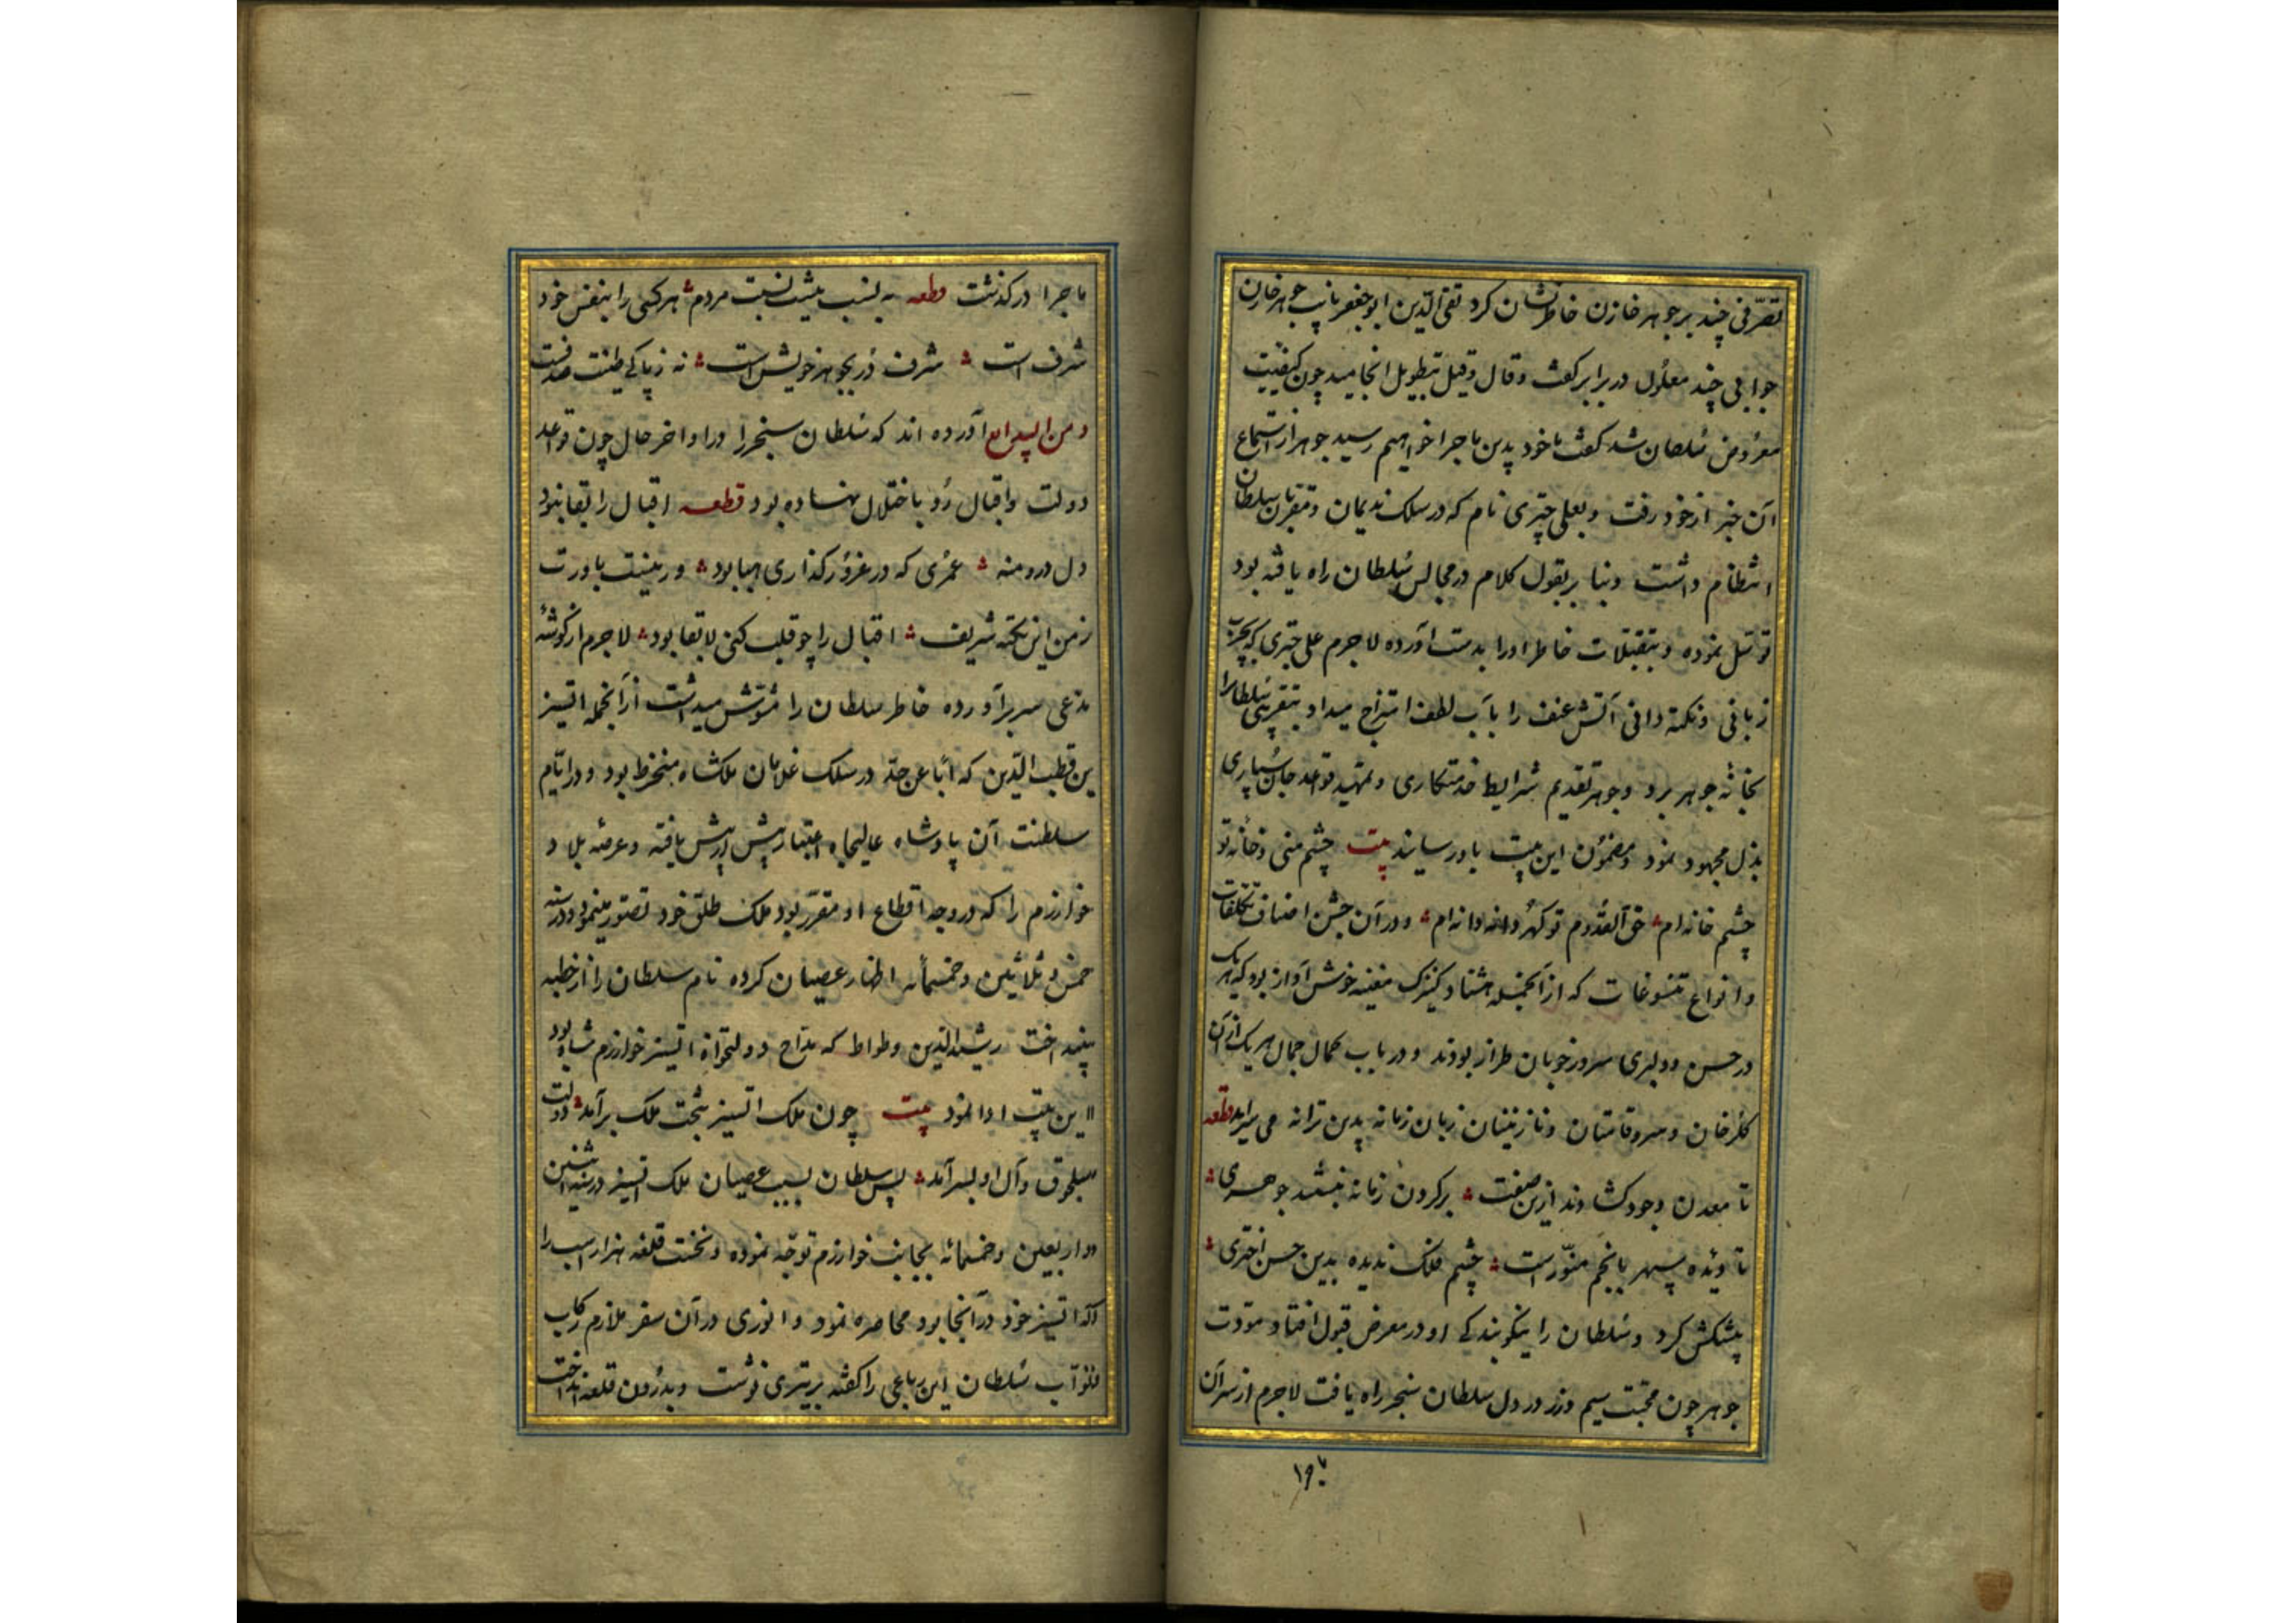 تصرّفی چند بر جوهر خازن خاطر نشان کرد تقی الدّین ابو جعفر نایب جوهر خازن
جوابی چند معلول در برابر گفت و قال و قیل بتطویل انجامید چون کیفیت
معروض سُلطان شد گفت ما خود بدین ماجرا خواهیم رسید جوهر از استماع
آن خبر از خود رفت و بعلی چتری نام که در سلک ندیمان و مقرّبان سلطان
انتظام داشت و بنا بر قبول کلام در مجالس سُلطان راه یافته بود
توسّل نموده و بتقبّلات خاطر او را بدست آورده لاجرم علی چتری که بچرب
زبانی و نکته دانی آتش عنف را با آب لطف امتزاج میداد و بتقریبی سُلطانرا
بخانهٔ جوهر برد و جوهر تقدیم شرایط خدمتکاری و تمهید قواعد جان سُپاری
بذل مجهود نمود و مضمون این بیت باو رسانید بیت چشم منی و خانه تو
چشم خانه‌ام حق القُدوم تو گهر دانه دانه‌ام و در آن جشن اصناف تکلفات
و انواع تنسوغات که از آنجمله هشتاد کنیزک مغنیه خوش آواز بود که هر یک
در حسن و دلبری سرور خوبان طراز بودند و در باب کمال جمال هر یک از آن
گلرخان و سروقامتان و نازنینان زبان زمانه بدین ترانه می سراید قطعه
تا معدن وجود گشادند ازین صفت بر گردن زمانه نبستند جوهری
تا دیدهٔ سپهر بانجم منوّر است چشم فلک ندیده بدین حسن اختری
پیشکش کرد و سُلطان را نیکو بندگی او در معرض قبول افتاد و مودّت
جوهر چون محبّت سیم و زر در دل سلطان سنجر راه یافت لاجرم از سر آن
ما
ماجرا در گذشت قطعه به نسب نیست نسبت مردم هر کسی را بنفس خود
شرف است شرف دُر بجوهر خویش است نه ز پاکی طینت صدفست
و من البدایع آورده اند که سُلطان سنجر را در اواخر حال چون قواعد
دولت و اقبال رُو باختلال نهاده بود قطعه اقبال را بقا نبود
دل درو منه عمری که در غرور گذاری هبا بود ور نیست باورت
ز من این نکته شریف اقبال را چو قلب کنی لا بقا بود لاجرم از هر گوشه
مدعی سر برآورده خاطر سلطان را مُشوّش میداشت از آنجمله اتسیز
بن قطب الدّین که اباً عن جدّ در سلک غلامان ملکشاه منخرط بود و در ایّام
سلطنت آن پادشاه عالیجاه اعتبار بیش از پیش یافته و عرصهٔ بلاد
خوارزم را که در وجه اقطاع او مقرّر بود ملک طلق خود تصوّر مینمود و در سنه
خمس و ثلاثین و خمسمائه اظهار عصیان کرده نام سلطان را از خطبه
بینداخت رشید الدّین وطواط که مدّاح و دولتخواه اتسیز خوارزم شاه بود
این بیت ادا نمود بیت چون ملک اتسیز بتخت ملک برآمد دولت
سلجوق و آل او بسر آمد پس سلطان بسبب عصیان ملک اتسیز در سنه اثنین
و اربعین و خمسمائه بجانب خوارزم توجّه نموده و نخست قلعه هزار اسب را
که اتسیز خود در آنجا بود محاصره نمود و انوری در آن سفر ملازم رکاب
ظفر مآب سُلطان این رباعی را گفته بر تیری نوشت و بدرون قلعه انداخت